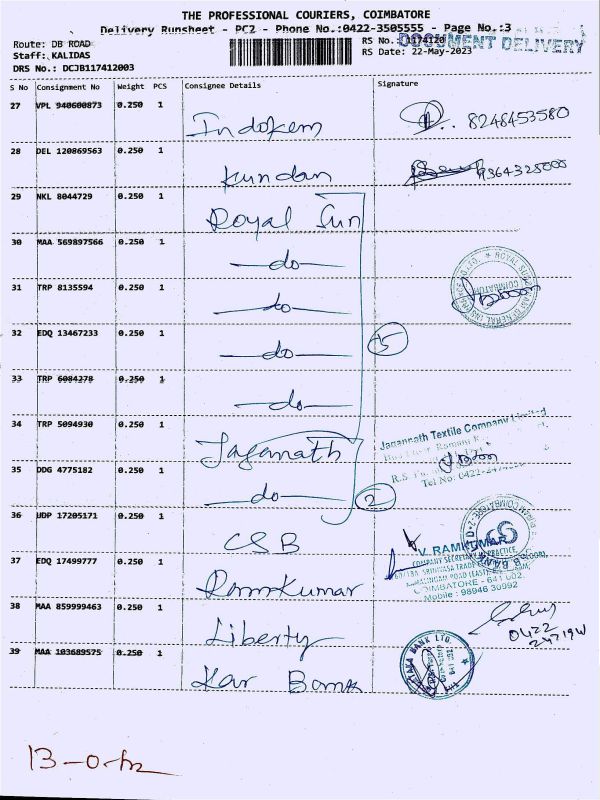 THE PROFESSIONAL COURIERS, COIMBATORE
Delivery Runsheet - PC2 - Phone No.:0422-3505555 - Page No.:3
Route: DB ROAD
RS No.: 1174120
DOCUMENT DELIVERY
Staff: KALIDAS
RS Date: 22-May-2023
DRS No.: DCJB117412003
S No Consignment No Weight PCS Consignee Details Signature
27 VPL 940600873 0.250 1 Indokem 8248453580
28 DEL 120869563 0.250 1 Kundan 9364325000
29 NKL 8044729 0.250 1 Royal Sun
30 MAA 569897566 0.250 1 —do—
31 TRP 8135594 0.250 1 —do—
32 EDQ 13467233 0.250 1 —do— 5
33 TRP 6084278 0.250 1 —do—
34 TRP 5094930 0.250 1 Jaganath
Jagannath Textile Company Limited
35 DDG 4775182 0.250 1 —do— 2
Tel No. 0422-
36 UDP 17205171 0.250 1 CSB
V. RAMKUMAR
COMPANY SECRETARY IN PRACTICE
37 EDQ 17499777 0.250 1 Ramkumar
COIMBATORE - 641 002.
Mobile : 98946 30992
38 MAA 859999463 0.250 1 Liberty 0422
39 MAA 103689575 0.250 1 Kar Bank